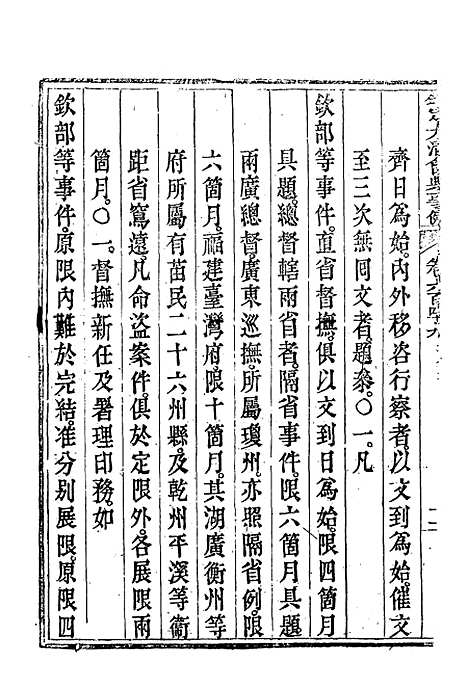 齊日爲始。內外移咨行察者。以文到爲始。催文
至三次無回文者。題叅。〇一。凡
欽部等事件。直省督撫。俱以文到日爲始。限四箇月
具題。總督轄兩省者。隔省事件。限六箇月具題
兩廣總督。廣東巡撫。所屬瓊州。亦照隔省例。限
六箇月。福建臺灣府限十箇月。其湖廣衡州等
府所屬有苗民二十六州縣。及乾州平溪等衞
距省窵遠。凡命盜案件。俱於定限外。各展限兩
箇月。〇一。督撫新任及署理印務。如
欽部等事件。原限內難於完結。准分別展限。原限四